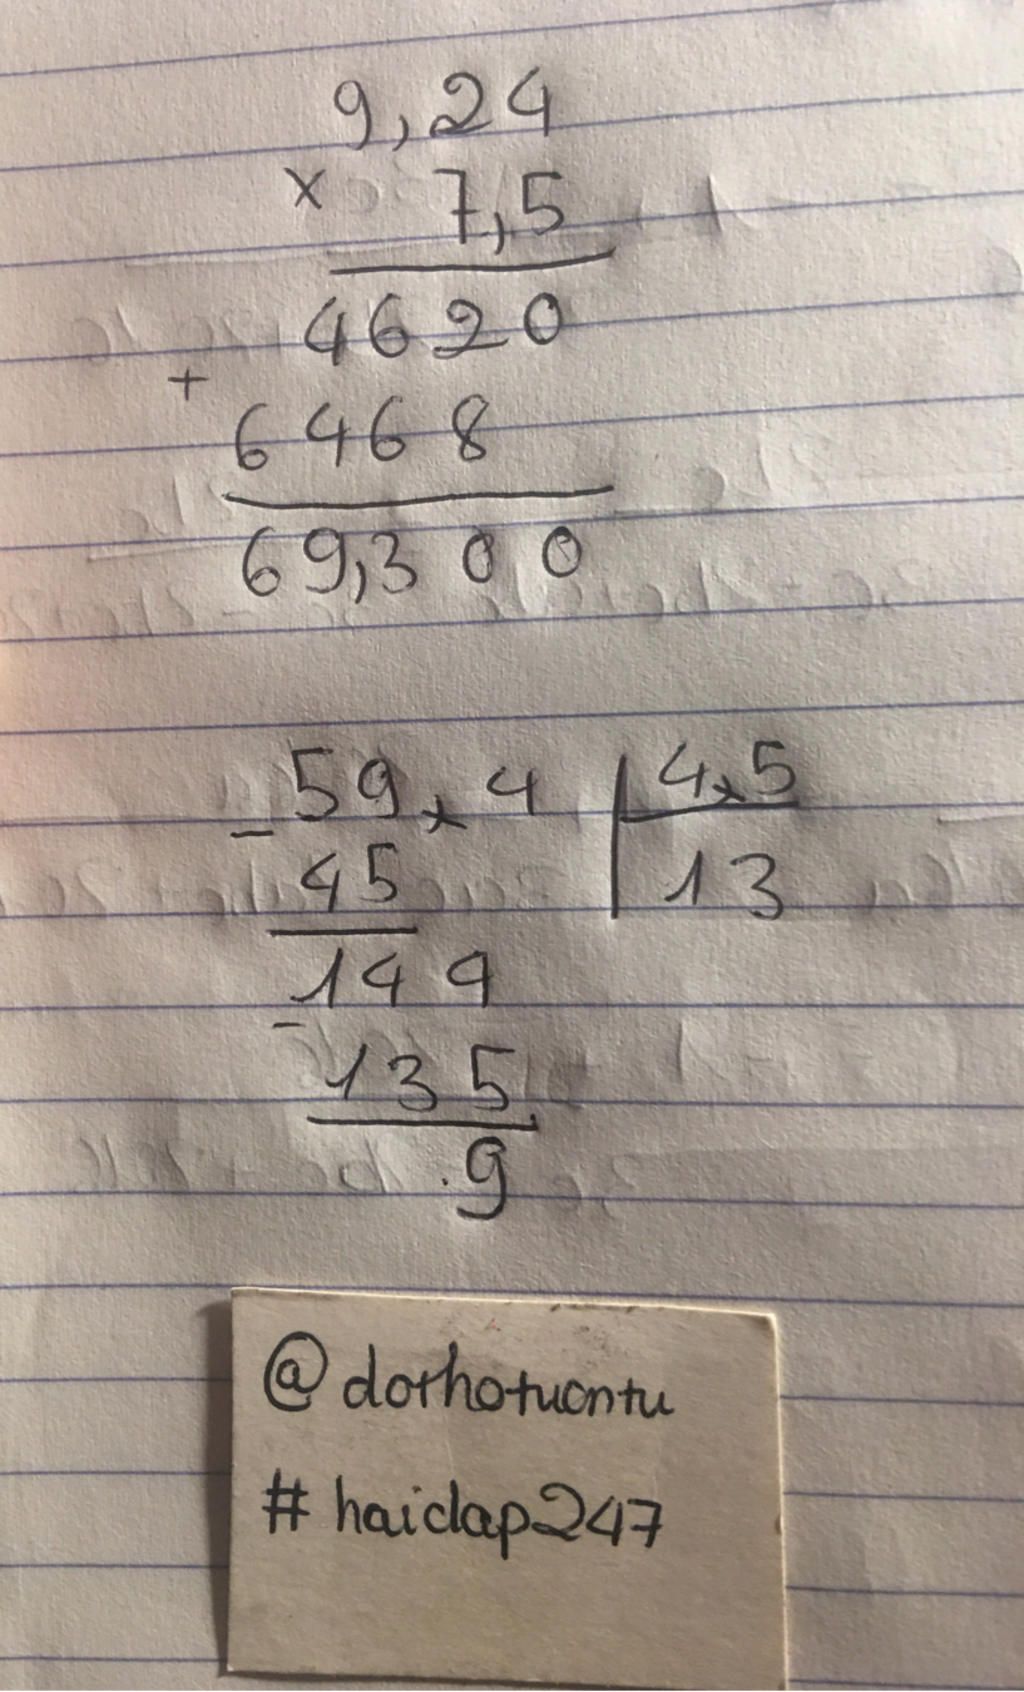 9,24
× 7,5
4620
+
6468
69,300
- 59,4 4,5
45 13
144
- 135
9
@dothotuontu
#haidap247